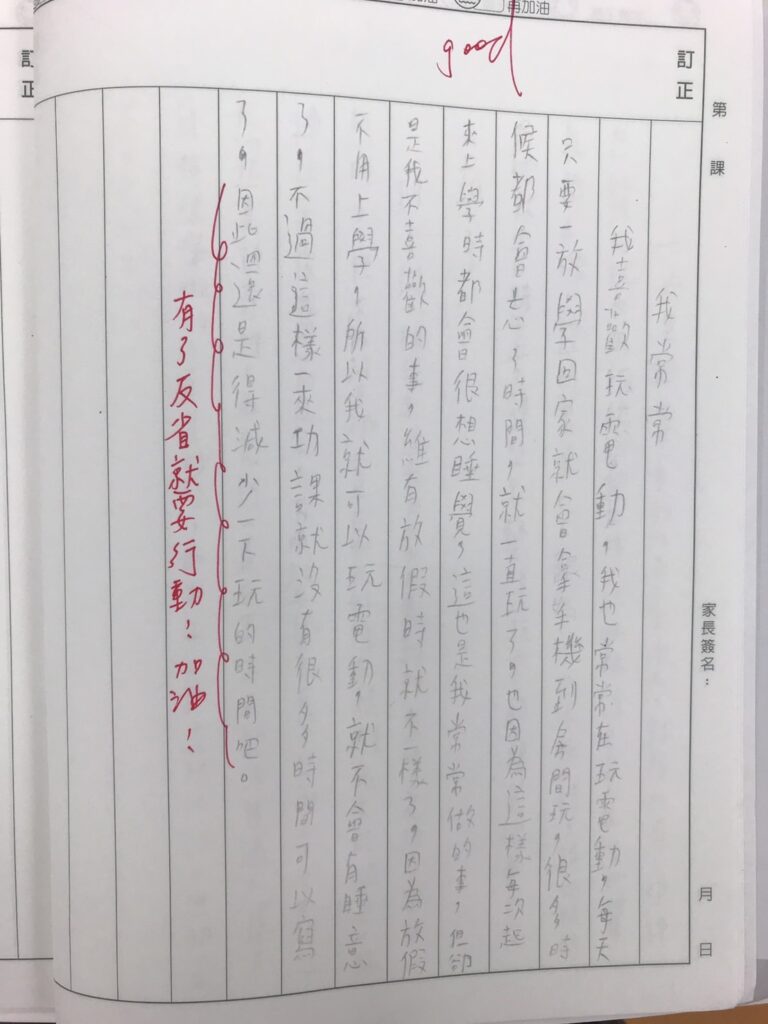 再加油
good
訂正
第 課
家長簽名：
月 日
我常常
我喜歡玩電動，我也常常在玩電動，每天
只要一放學回家就會拿手機到房間玩，很多時
候都會忘了時間，就一直玩了，也因為這樣每次起
來上學時都會很想睡覺，這也是我常常做的事，但卻
是我不喜歡的事，維有放假時就不一樣了，因為放假
不用上學，所以我就可以玩電動，就不會有睡意
了，不過這樣一來功課就沒有很多時間可以寫
了，因此還是得減少一下玩的時間吧。
有了反省就要行動！加油！
訂正